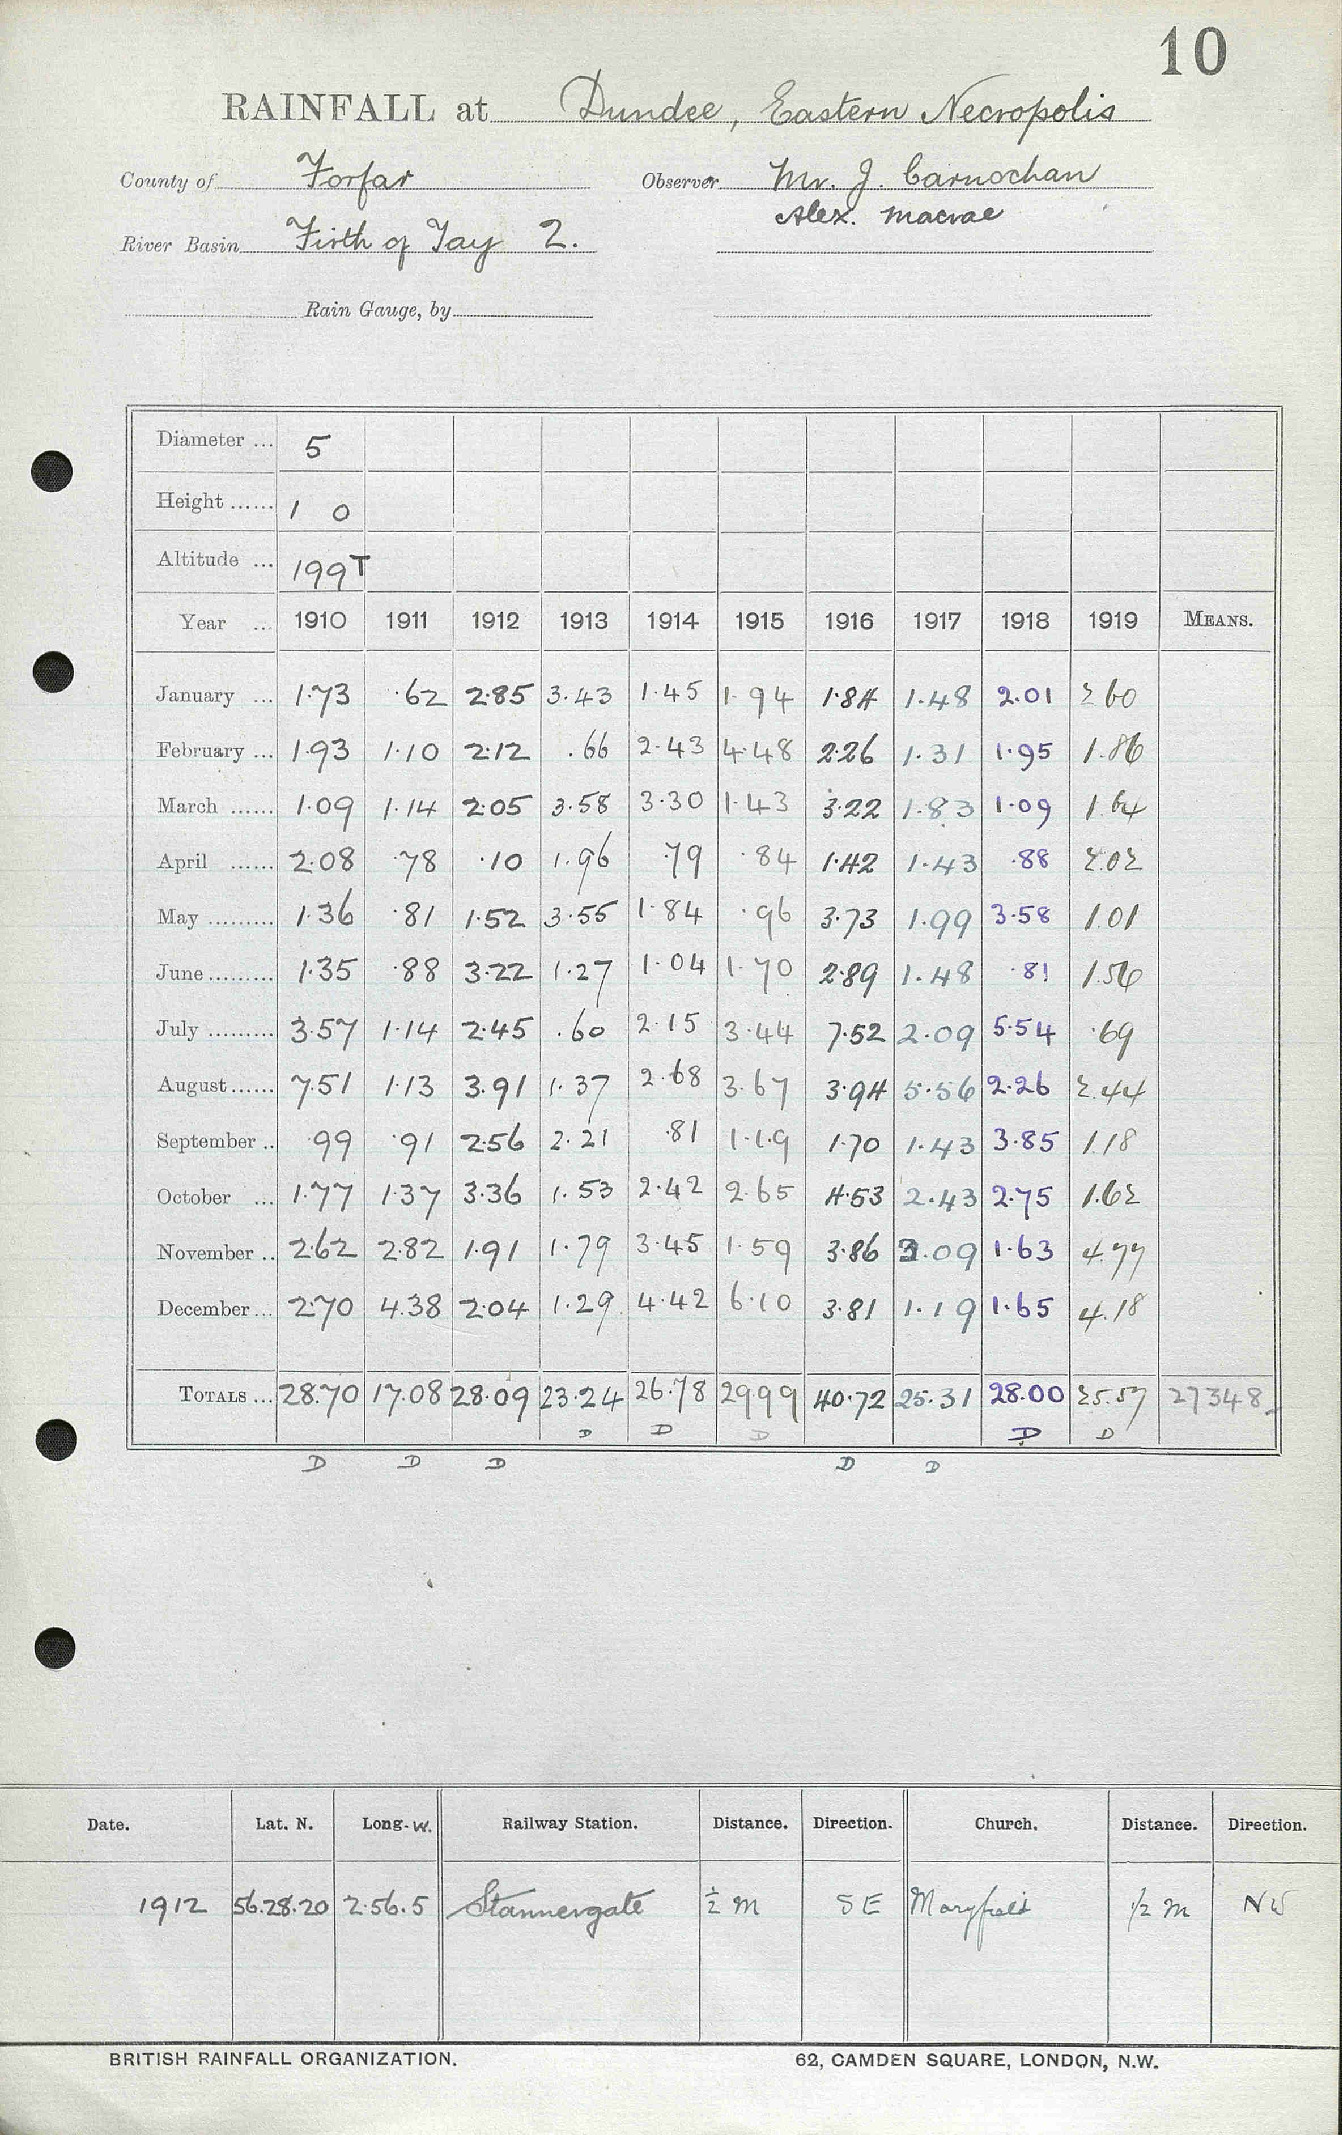 10
RAINFALL at Dundee, Eastern Necropolis
County of Forfar Observer Mr. J. Carnochan
Alex. Macrae
River Basin Firth of Tay 2.
Rain Gauge, by
Diameter ... 5
Height ...... 1 0
Altitude ... 199T
Year ... 1910 1911 1912 1913 1914 1915 1916 1917 1918 1919 MEANS.
January ... 1.73 .62 2.85 3.43 1.45 1.94 1.84 1.48 2.01 2.60
February ... 1.93 1.10 2.12 .66 2.43 4.48 2.26 1.31 1.95 1.86
March ...... 1.09 1.14 2.05 3.58 3.30 1.43 3.22 1.83 1.09 1.64
April ...... 2.08 .78 .10 1.96 .79 .84 1.42 1.43 .88 2.02
May ......... 1.36 .81 1.52 3.55 1.84 .96 3.73 1.99 3.58 1.01
June ......... 1.35 .88 3.22 1.27 1.04 1.70 2.89 1.48 .81 1.56
July ......... 3.57 1.14 2.45 .60 2.15 3.44 7.52 2.09 5.54 .69
August...... 7.51 1.13 3.91 1.37 2.68 3.67 3.94 5.56 2.26 2.44
September .. .99 .91 2.56 2.21 .81 1.19 1.70 1.43 3.85 1.18
October ... 1.77 1.37 3.36 1.53 2.42 2.65 4.53 2.43 2.75 1.62
November .. 2.62 2.82 1.91 1.79 3.45 1.59 3.86 3.09 1.63 4.77
December ... 2.70 4.38 2.04 1.29 4.42 6.10 3.81 1.19 1.65 4.18
TOTALS ... 28.70 17.08 28.09 23.24 26.78 29.99 40.72 25.31 28.00 25.57 27348
D D D D D
D D D D D
Date. Lat. N. Long. W. Railway Station. Distance. Direction. Church. Distance. Direction.
1912 56.28.20 2.56.5 Stannergate ½ m SE Maryfield ½ m NW
BRITISH RAINFALL ORGANIZATION. 62, CAMDEN SQUARE, LONDON, N.W.